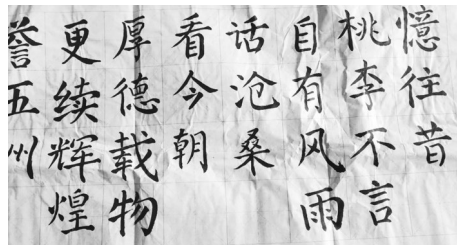 憶往昔
桃李不言
自有风雨
话沧桑
看今朝
厚德载物
更续辉煌
誉五州